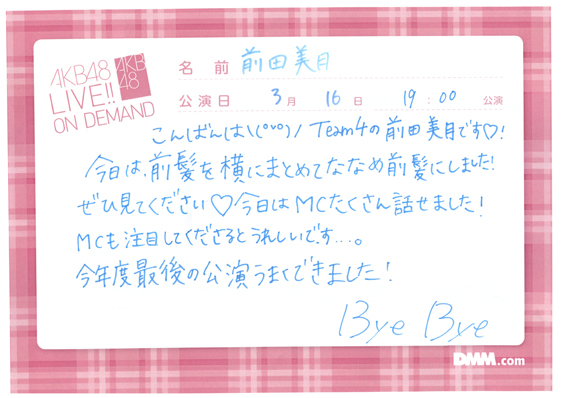 AKB48
LIVE!!
ON DEMAND
AKB
48
名 前 前田美月
公演日 3月 16日 19:00 公演
こんばんは\(^o^)/ Team4の前田美月です♡!
今日は、前髪を横にまとめてななめ前髪にしました!
ぜひ見てください♡今日はMCたくさん話せました!
MCも注目してくださるとうれしいです…。
今年度最後の公演うまくできました!
Bye Bye
DMM.com